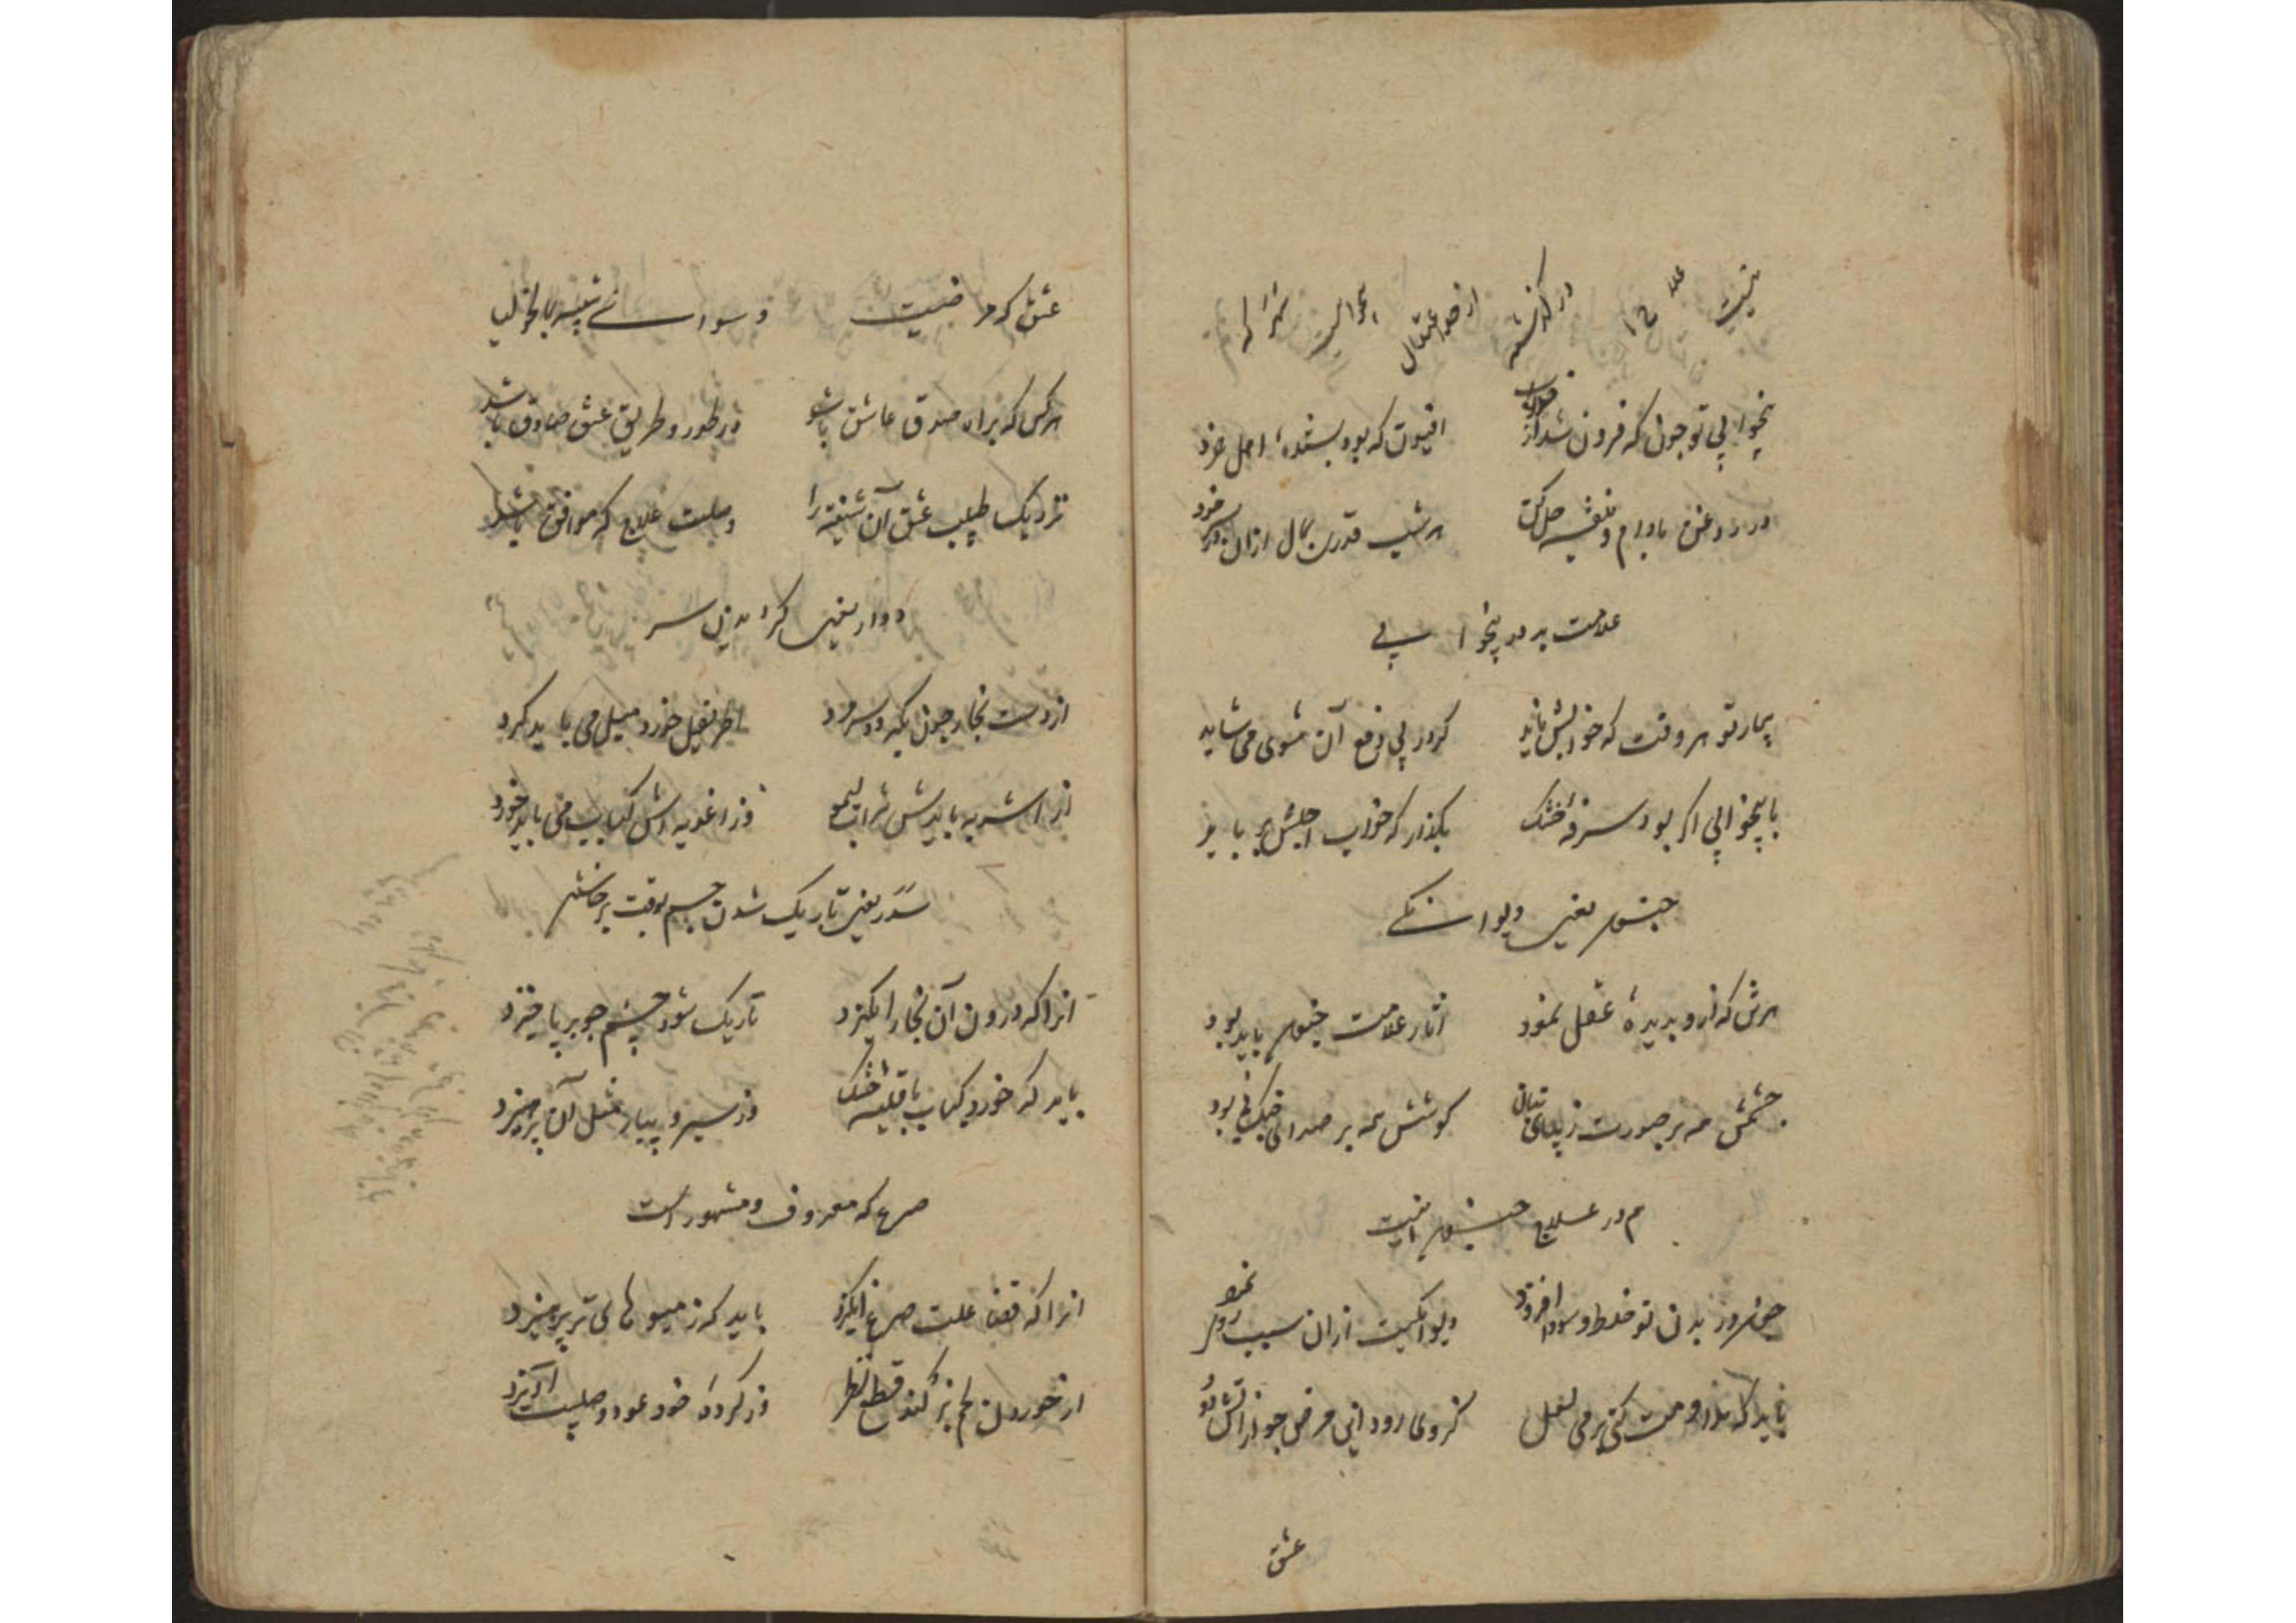 سهر که بیخوابیست از حد اعتدال در گذشته علاج اینست
بیخوابی تو چون که فزون شد از خواب افیون که بود پسنده اهل خرد
در روغن بادام و بنفشه حل کن هر شب قدری بمال ازان بر سر خود
علامت بد در بیخوابی
بیمار تو هر وقت که خوابش ناید کر در پی دفع آن شوی می شاید
با بیخوابی اکر بود سرفه خشک بکذار که خواب اجلش بر باید
جنون یعنی دیوانکی
هرش که ازو بدیده عقل نمود آثار علامت جنون باید بود
چشمش همه بر صورت زیبای بتان کوشش همه بر صدای چنک و نی بود
هم در علاج جنون اینست
چون در بدن تو خلط سودا افزود دیوانکیت ازان سبب روی نمود
باید که مداومت کنی بر می لعل کز وی رود این مرض چو از آتش دود
عشق
عشق که مرضیست وسواسی شبیه بمالیخولیا
هر کس که براه صدق عاشق باشد در طور و طریق عشق صادق باشد
نزدیک طبیب عشق آن شیفته را وصلت علاج که موافق باشد
دوار یعنی کردیدن سر
از دست بخار چون بکردد سر مرد اطریفل خورد میل می باید کرد
از اشربه بایدش شراب لیمو وز اغذیه اش کباب می باید خورد
سدر یعنی تاریک شدن چشم بوقت برخاستن
انرا که درون آن بخار انکیزد تاریک شود چشم چو بر پا خیزد
باید که خورد کباب با قلیه خشک وز سیر و پیاز مثل آن پرهیزد
صرع که معروف و مشهور است
انرا که قضا علت صرع انکیزد باید که ز میوهای تر پرهیزد
از خوردن لحم بز کند قطع نظر وز کردن خود عود صلیب آویزد